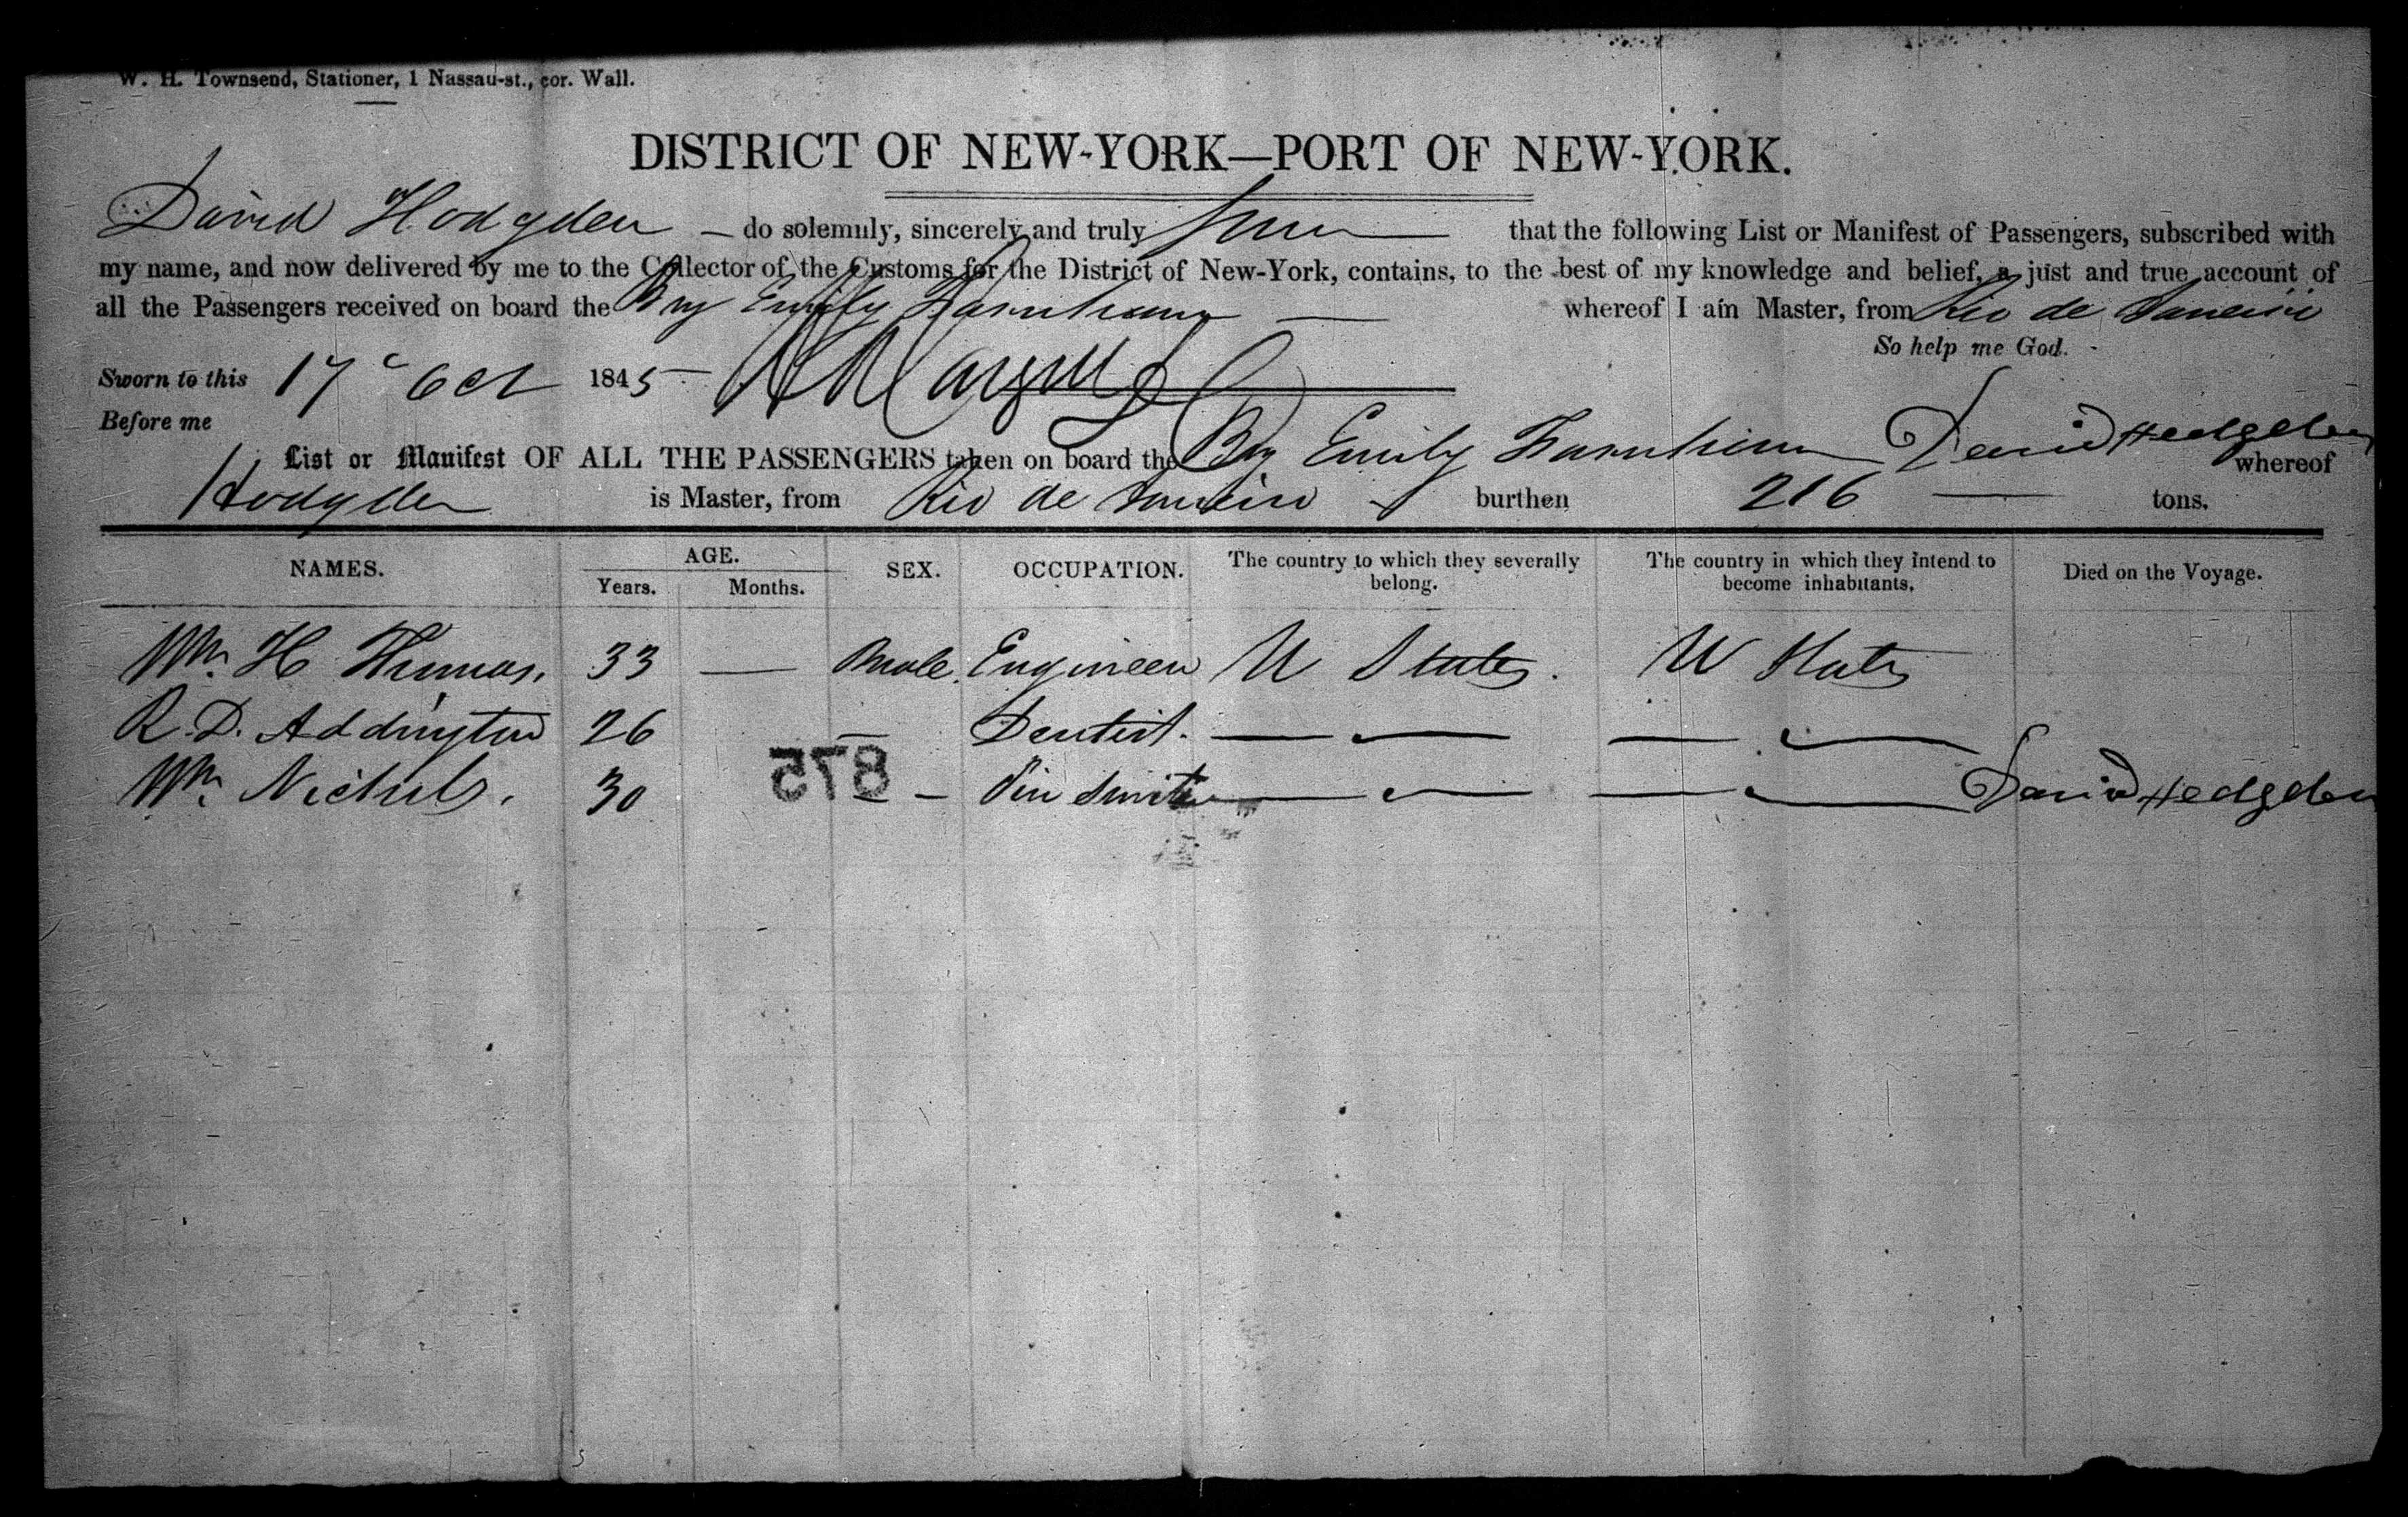 W. H. Townsend, Stationer, 1 Nassau-st., cor. Wall.
DISTRICT OF NEW-YORK—PORT OF NEW-YORK.
David Hodgden — do solemnly, sincerely and truly that the following List or Manifest of Passengers, subscribed with
my name, and now delivered by me to the Collector of the Customs for the District of New-York, contains, to the best of my knowledge and belief, a just and true account of
all the Passengers received on board the Brig Emily Farnham — whereof I am Master, from Rio de Janeiro
So help me God.
Sworn to this 17 Oct 1845
Before me
List or Manifest OF ALL THE PASSENGERS taken on board the Brig Emily Farnham David Hedgden whereof
Hodgden is Master, from Rio de Janeiro burthen 216 — tons.
NAMES. AGE. SEX. OCCUPATION. The country to which they severally belong. The country in which they intend to become inhabitants. Died on the Voyage.
Years. Months.
Wm. H Thomas. 33 — Male. Engineer U States. U States
R. D. Addington 26 — Dentist. — — — —
Wm. Nichols. 30 — — Tin Smith — — — — David Hedgden
875